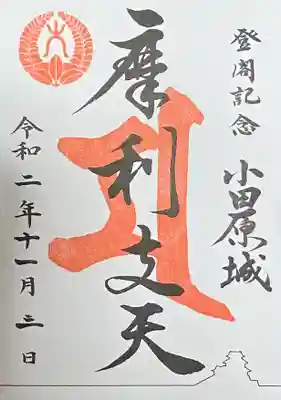 登閣記念
小田原城
摩利支天
令和二年十一月三日